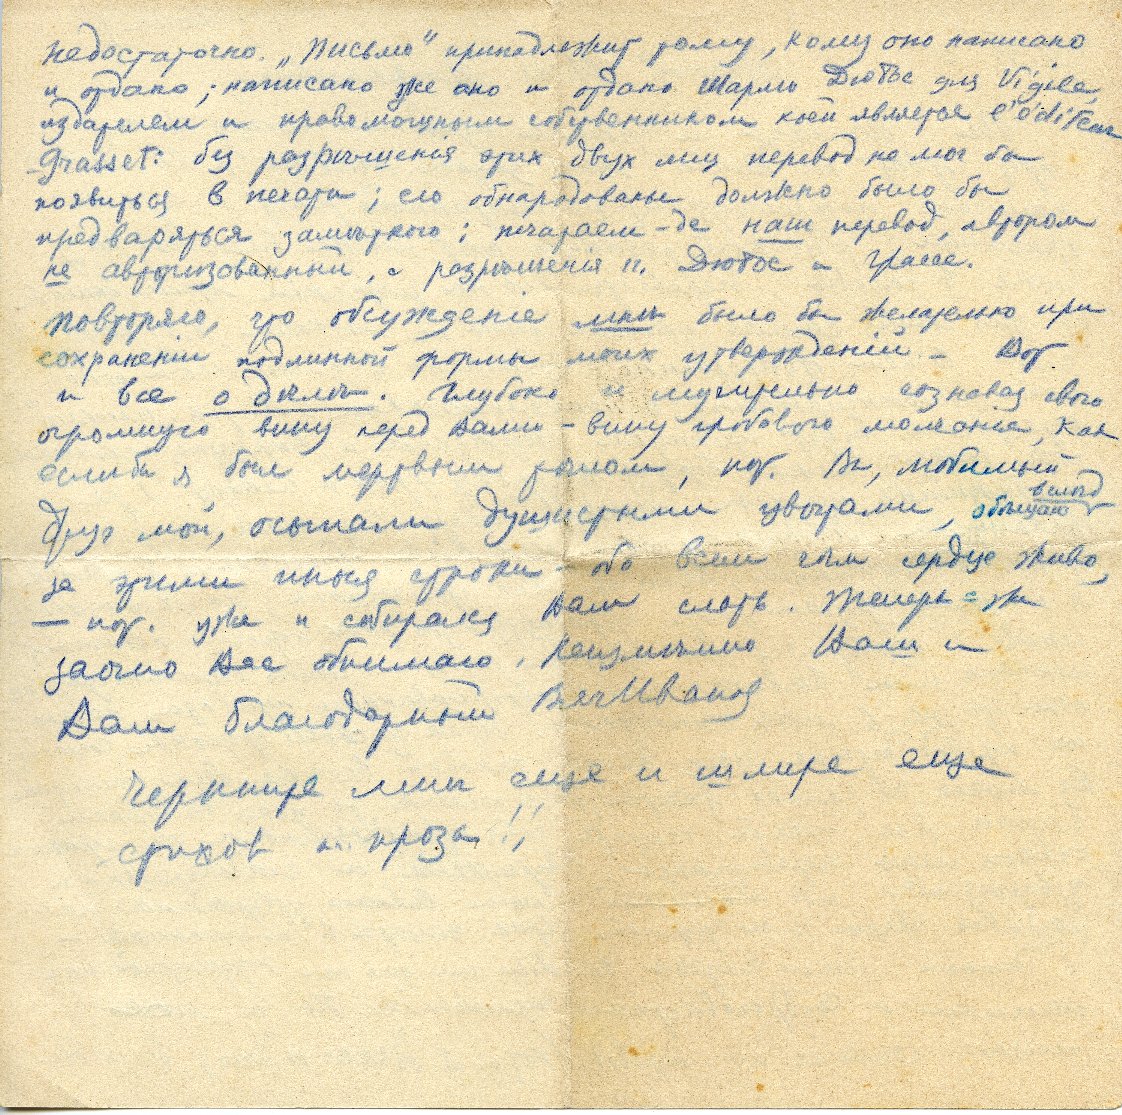 недостаточно. „Письмо“ принадлежит тому, кому оно написано
и отдано; написано же оно и отдано Шарлю Дюбосъ для Vigile,
издателем и правомощным собственником коей является l'éditeur
Grasset: без разрѣшенія этих двух лиц перевод не мог бы
появиться в печати; его обнародованье должно было бы
предваряться замѣткою; печатаем-де наш перевод, автором
не авторизованный, с разрѣшенія гг. Дюбос и Грассе.
Повторяю, что обсужденіе мнѣ было бы желательно при
сохраненіи подлинной формы моих утвержденій — Вот
и все о дѣлѣ. Глубоко и мучительно сознавая свою
огромную вину перед Вами — вину гробового молчанія, как
если бы я был мертвым телом, кот. Вы, любимый
друг мой, осыпали душистыми цвѣтами, обѣщаю вслѣд
за этими иныя строки — обо всем чѣм сердце живо,
— кот. уже и собирался Вам слать. Теперь = же
заочно Вас обнимаю. Неизмѣнно Ваш и
Вам благодарный ВячИванов
Черкните мнѣ еще и шлите еще
стихов и прозы!!